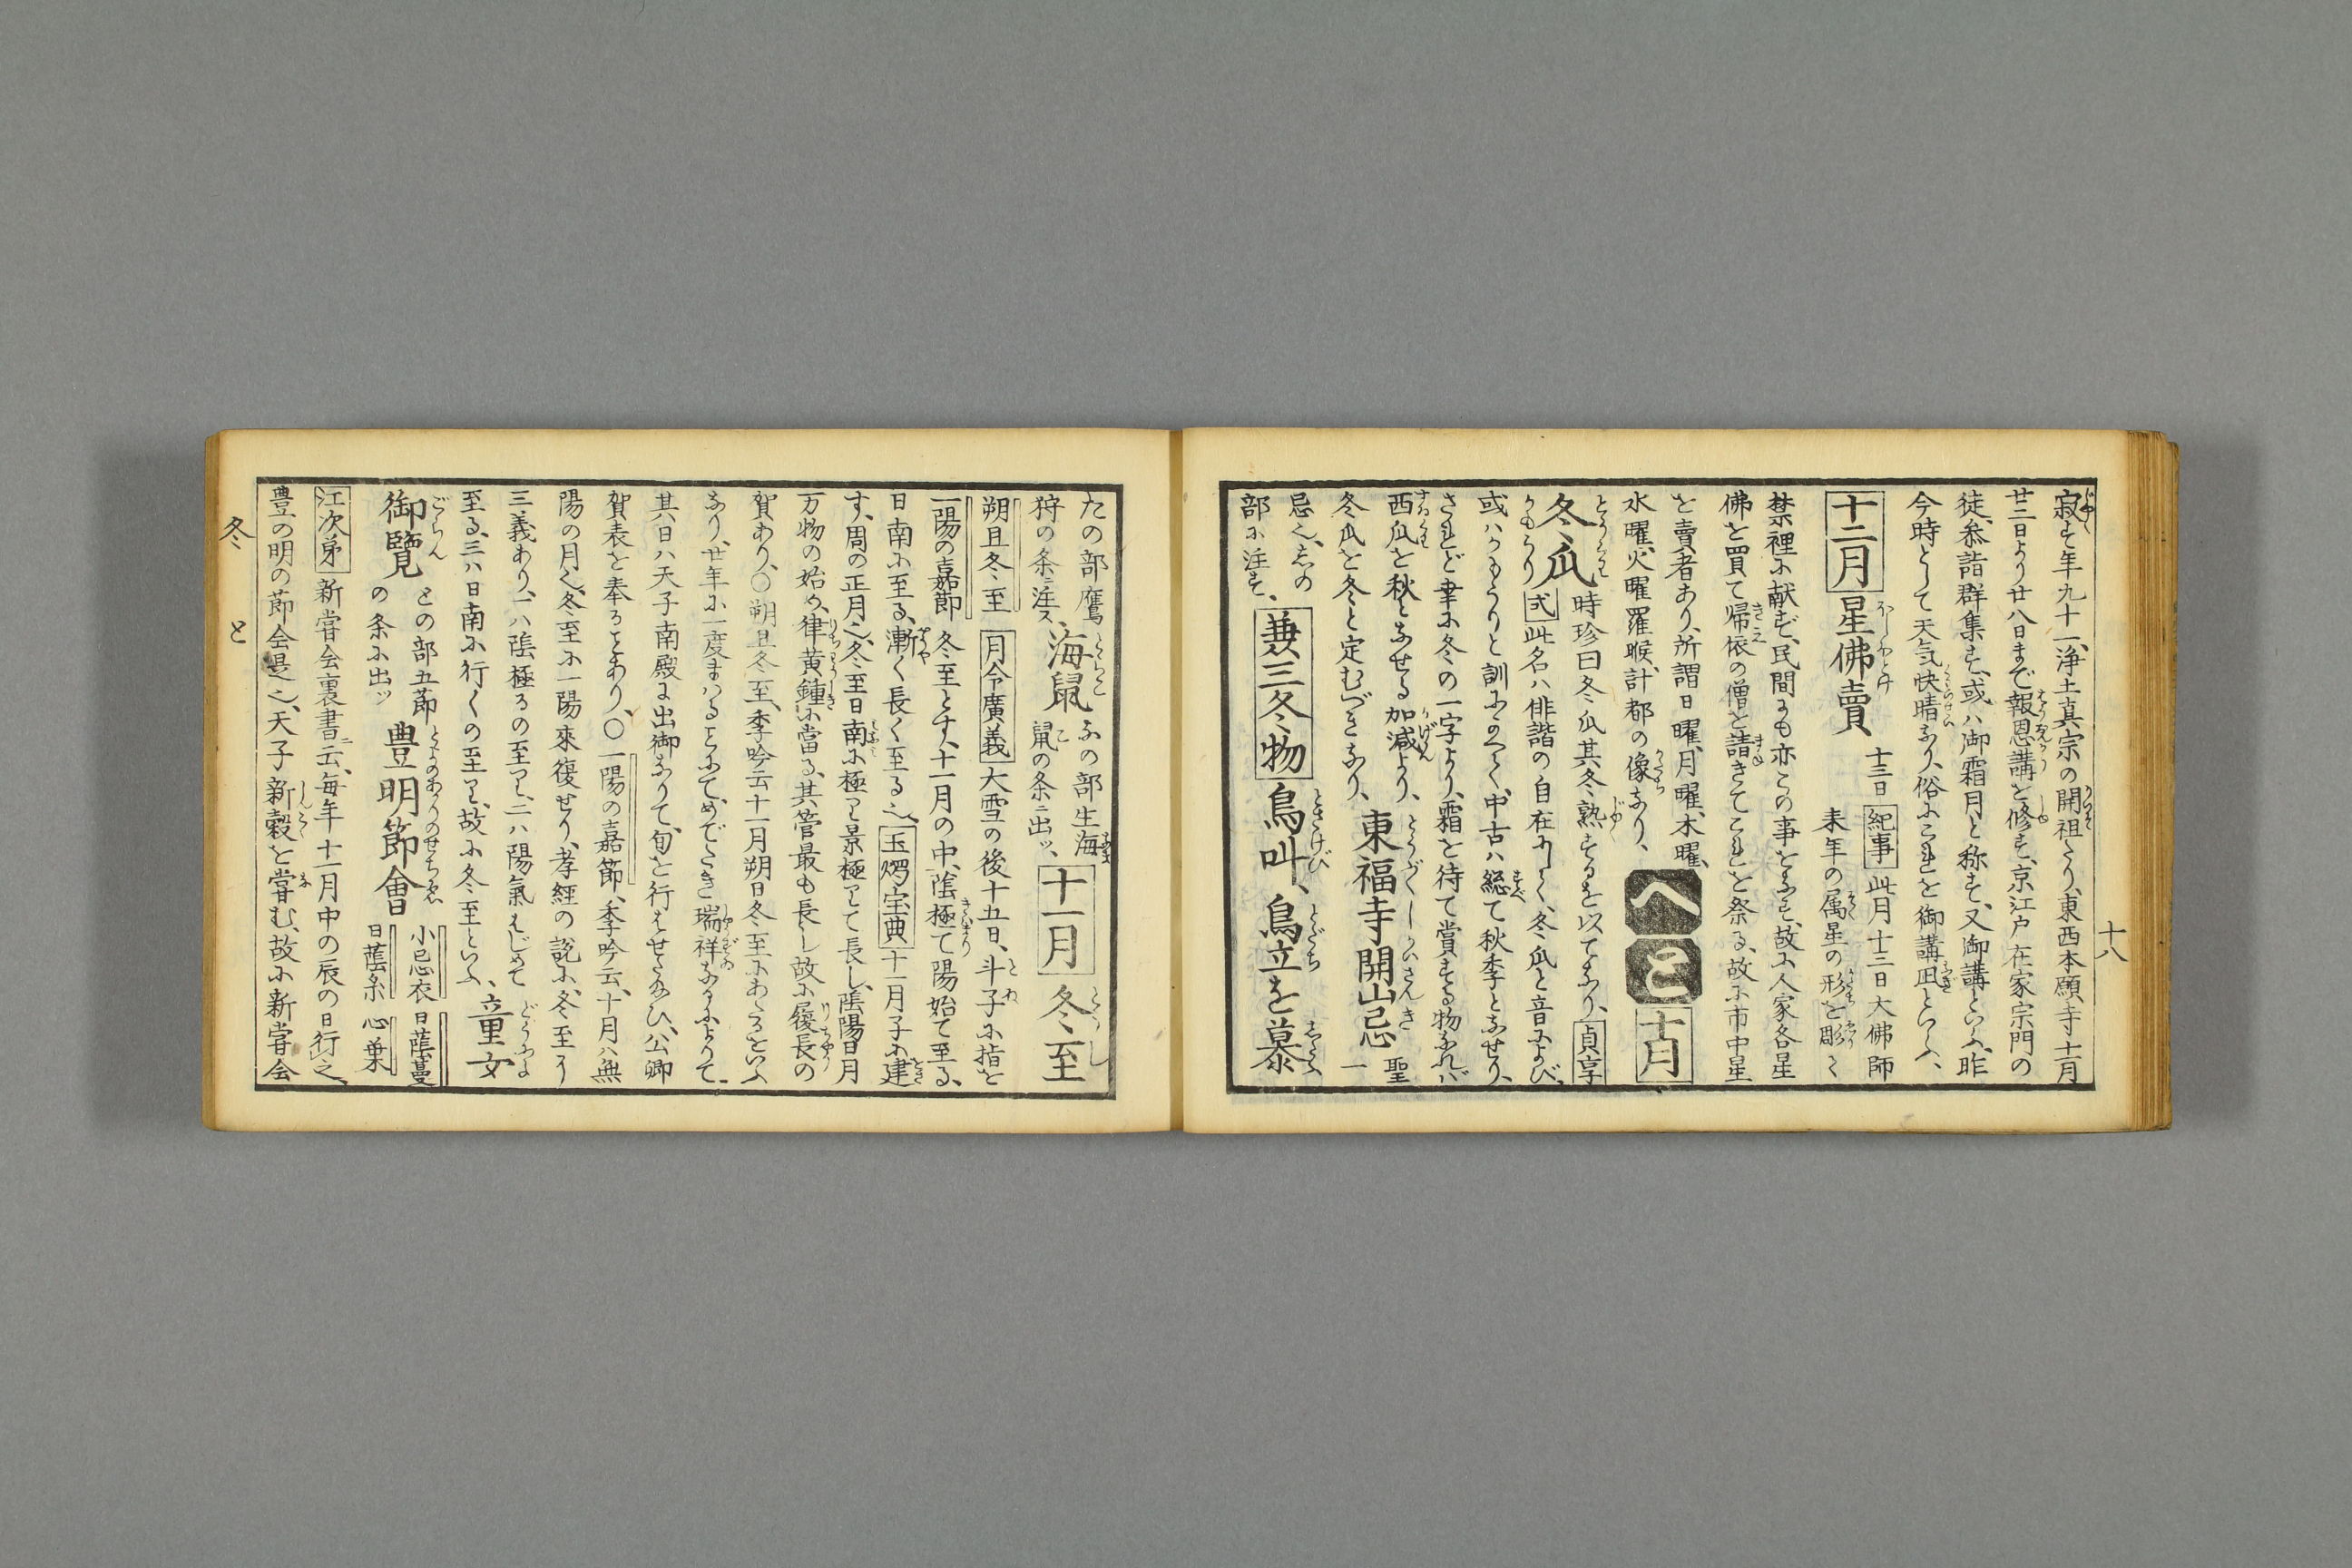 十八
寂す年九十一、浄土真宗の開祖たり、東西本願寺十一月
廿二日より廿八日まで報恩講を修す、京江戸在家宗門の
徒、参詣群集す、或ハ御霜月と称す、又御講といふ、昨
今時として天気快晴なり、俗にこれを御講凪といふ、
十二月 星佛賣 十三日 紀事 此月十三日大佛師
来年の属星の形を彫て
禁裡に献ず、民間にも亦この事をなす、故に人家各星
佛を買て帰依の僧を請きてこれを祭る、故に市中星
を賣者あり、所謂日曜、月曜、木曜、
水曜、火曜、羅睺、計都の像なり、
へ と 十月
冬瓜 時珍曰冬瓜其冬熟するを以てなり、貞享
式 此名ハ俳諧の自在にして、冬瓜と音によび、
或ハかもうりと訓にのべて、中古ハ総て秋季となせり、
されど聿に冬の一字より、霜を待て賞する物なれバ
西瓜を秋となせる加減より、
冬瓜を冬と定むづきなり、
東福寺開山忌 聖一
忌也、志の
部に注す、
兼三冬物 鳥叫、鳥立を慕
たの部鷹
狩の条ニ注ス、
海鼠 なの部生海
鼠の条ニ出ッ、
十一月 冬至
朔旦冬至 月令廣義 大雪の後十五日、斗子に指を
一陽の嘉節 冬至とす、十一月の中、陰極て陽始て至る、
日南に至る、漸く長く至る也、玉燭宝典 十一月子に建
す、周の正月也、冬至日南に極て景極りて長し、陰陽日月
万物の始め、律黄鍾に當る、其管最も長し故に履長の
賀あり、○朔旦冬至、季吟云十一月朔日冬至にあたるをいふ
なり、廿年に一度まハることにて、めでたき瑞祥なるによりて、
其日ハ天子南殿に出御なりて、旬を行ハせ給ひ、公卿
賀表を奉ることあり、○一陽の嘉節、季吟云、十月ハ無
陽の月也、冬至に一陽來復せり、孝經の説に、冬至に
三義あり、一ハ陰極るの至り、二ハ陽氣はじめて
至る、三ハ日南に行くの至り、故に冬至といふ、
童女
御覽 との部五節
の条に出ッ
豊明節會 小忌衣 日蔭蔓
日蔭糸 心葉
江次第 新嘗会裏書ニ云、毎年十一月中の辰の日行之、
豊の明の節会是也、天子新穀を嘗む、故に新嘗会
冬 と